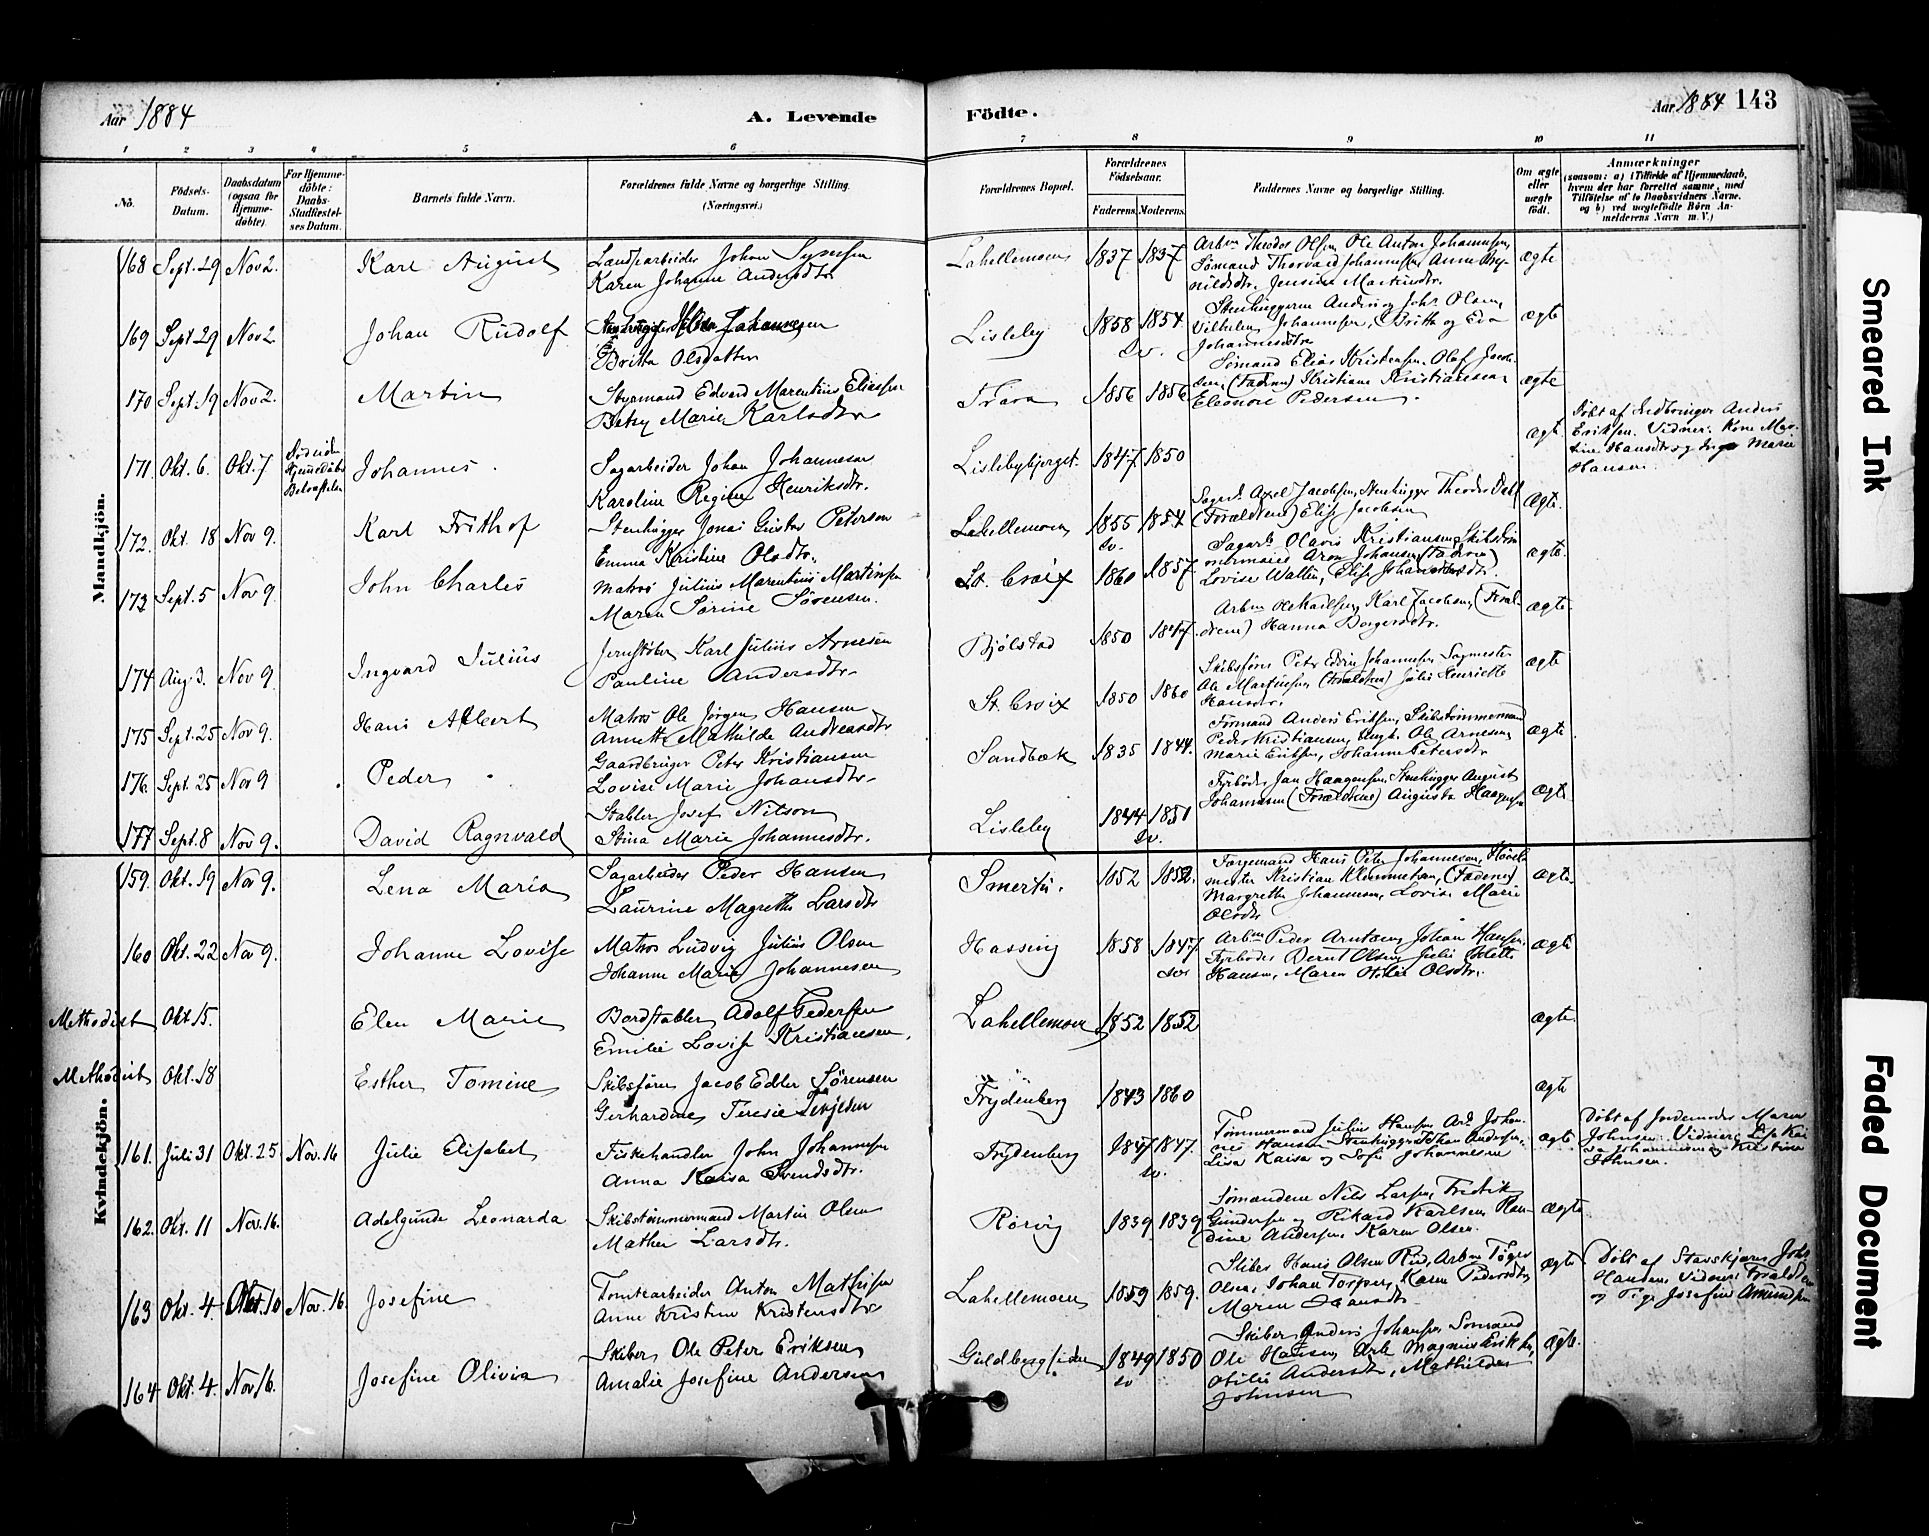 Aar 1884
A. Levende
Födte.
Aar 1884 143
1 2 3 4 5 6 7 8 9 10 11
No.
Födsels-Datum.
Daabsdatum (ogsaa for Hjemmedöbte).
For Hjemmedöbte: Daabs-Stadfæstelses Datum.
Barnets fulde Navn.
Forældrenes fulde Navne og borgerlige Stilling. (Næringsvei.)
Forældrenes Bopæl.
Forældrenes Födselsaar.
Faderens. Moderens.
Faddernes Navne og borgerlige Stilling.
Om ægte eller uægte födt.
Anmærkninger
(saasom: a) i Tilfælde af Hjemmedaab, hvem der har forrettet samme, med Tilföielse af to Daabsvidners Navne, og b) ved uægtefödte Börn Anmelderens Navn m. V.)
Mandkjön.
168 Sept. 29 Nov 2. Karl August Johan Syversen Lahellemoen 1837 1837 Arbm Theodor Olsen, Ole Anton Johannesen, ægte
Karen Johanne Andersdtr Sømand Thorvald Johannesen Anne
Jensine Martinsdtr.
169 Sept 29 Nov 2. Johan Rudolf Johannesen Lisleby 1858 1854 Stenhuggerne Anders og Johs. Olsen, ægte
Britta Olsdatter sv. Vilhelm Johannesen, Britta og Eva
Johannesdtr
170 Sept. 19 Nov 2. Martin Styrmand Edvard Marentius Eliassen Trara 1856 1856 Sømand Elias Kristensen, Olaf ægte
Betsy Marie Karlsdtr (Fadren) Kristiane Kristiansen
Eleonore Pedersen.
171 Okt. 6. Okt. 7 Johannes. Sagarbeider Johan Johannesen Lislebybjerget. 1847. 1850 ægt. Døbt af Anders
Karoline Regine Henriksdtr. Eriksen. Vidner: Kone
Hansdtr og Marie
Hansen.
172. Okt. 18 Nov 9. Karl Frithof Stenhugger Jonas Gustav Peterson Lahellemoen 1855 1854 Axel Jacobsen, Stenhugger Theodor ægte.
Emma Kristine Olsdtr. sv. (Forældrene) Elise Jacobsen
173 Sept. 5 Nov 9. John Charles Matros Julius Marentius Martinsen St. Croix 1860 1857. Sagarb. Olavis Kristiansen, ægte.
Maren Sørine Sørensen. Aron Johansen (Fadren)
Lovise Wallin, Elise Johannesdtr.
174 Aug. 3. Nov 9. Ingvard Julius Jernstøber Karl Julius Arnesen Bjølstad 1850 1847 Arbm Ole Karlsen, Karl Jacobsen, ægte.
Pauline Andersdtr. Hanna Borgersdtr.
175 Sept. 25 Nov 9. Hans Albert Matros Ole Jørgen Hansen St. Croix 1850 1860 Skibsfører Peter Edvin Johannesen, Sagmester ægte
Annette Mathilde Andreasdtr Ole Martinsen, (Forældrene) Julie Henriette
Hansdtr.
176. Sept. 25 Nov 9 Peder Gaardbruger Peter Kristiansen Sandbæk 1835 1844. Formand Anders Eriksen, Skibstømmermand ægte
Lovise Marie Johansdtr. Peder Kristiansen, Ole Arnesen,
Marie Eriksen, Johanne Petersdtr
177 Sept. 8 Nov 9. David Ragnvald Stabler Josef Nilson Lisleby 1844 1851 Fyrbøder Jan Haagensen, Stenhugger August ægte
Stina Marie Johannesdtr. sv. Johannesen (Forældrene) Augusta Haagensen
Kvindekjön.
159. Okt. 19 Nov 9. Lena Maria Sagarbeider Peder Hansen Smertu. 1852 1852. Færgemand Hans Peter Johannesen, ægte.
Laurine Magrethe Larsdtr Kristian Klemmetsen, (Fadren)
Margrethe Johannesen, Lovise Marie
Olsdtr
160 Okt. 22 Nov 9. Johanne Lovise Matros Ludvig Julius Olsen Hassing 1858 1847. Arbm Peder Arntsen, Johan Hansen, ægte
Johanne Marie Johannesen Fyrbøder Bernt Olsen, Julie
Hansen, Maren Otilie Olsdtr.
Methodist Okt. 15. Elen Marie Bordstabler Adolf Pedersen Lahellemoen 1852 1852 ægte.
Emilie Lovise Kristiansen.
Methodist Okt. 18 Esther Tomine Skibsfører Jacob Edler Sørensen Frydenberg 1843 1860 ægte
Gerhardine Teresie Terjesen
161. Juli 31 Okt. 25 Nov. 16 Julie Elisabet Fiskehandler John Johannesen Frydenberg 1847 1847. Tømmermand Julius Hansen, ægte Døbt af Jordemoder Maren
Anna Kaisa Svendsdtr. sv. Hansen, Stenhugger Johan Andersen, Johnsen. Vidner: Lisa
Lisa Kaisa og Sofie Johannesen Johannesen og Kristina
Johnsen.
162. Okt. 11 Nov. 16. Adelgunde Leonarda Skibstømmermand Martin Olsen Rørvig 1839 1839 Sømandene Nils Larsen, Fredrik ægte
Mathea Larsdtr. Gundersen og Rikard Karlsen,
Andersen, Karen Olsen.
163 Okt. 4. Okt. 10 Nov. 16. Josefine Tomtearbeider Anton Mathisen Lahellemoen 1859 1859. Hans Olsen Rød, Arbm ægte Døbt af
Anne Kristine Kristensdtr Olsen, Johan Karen Pedersdtr Hansen, Vidner:
Maren Hansdtr. og Pige Josefine Amundsen
164 Okt. 4. Nov 16. Josefine Olivia Skiber Ole Peter Eriksen Guldbergsiden 1849 1850 Skiber Anders Johansen, Sømand ægte.
Amalie Josefine Andersen sv Ole Hansen, Arb. Magnus Eriksen,
Otilie Andersdtr, Mathilde
Johnsen
Smeared Ink
Faded Document